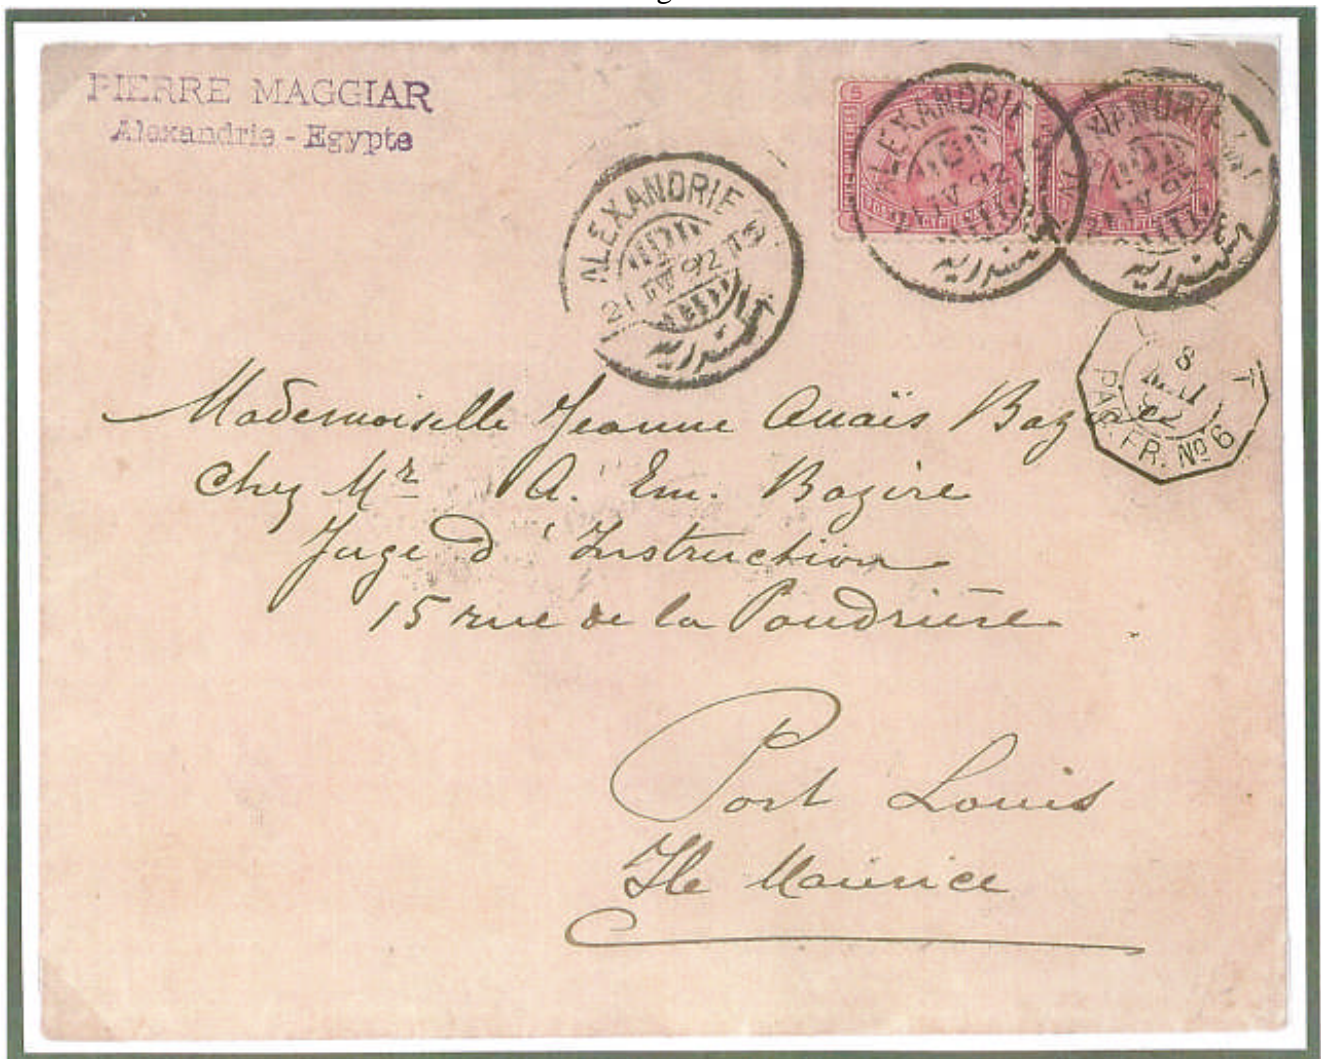 PIERRE MAGGIAR
Alexandrie - Egypte
ALEXANDRIE
ALEXANDRIE
ALEXANDRIE
21 IV 92
الإسكندرية
8
MAI
92
PAQ. FR. No 6
Mademoiselle Jeanne Anaïs Bazire
chez Mr A. Em. Bazire
Juge d'Instruction
15 rue de la Poudrière
Port Louis
Ile Maurice